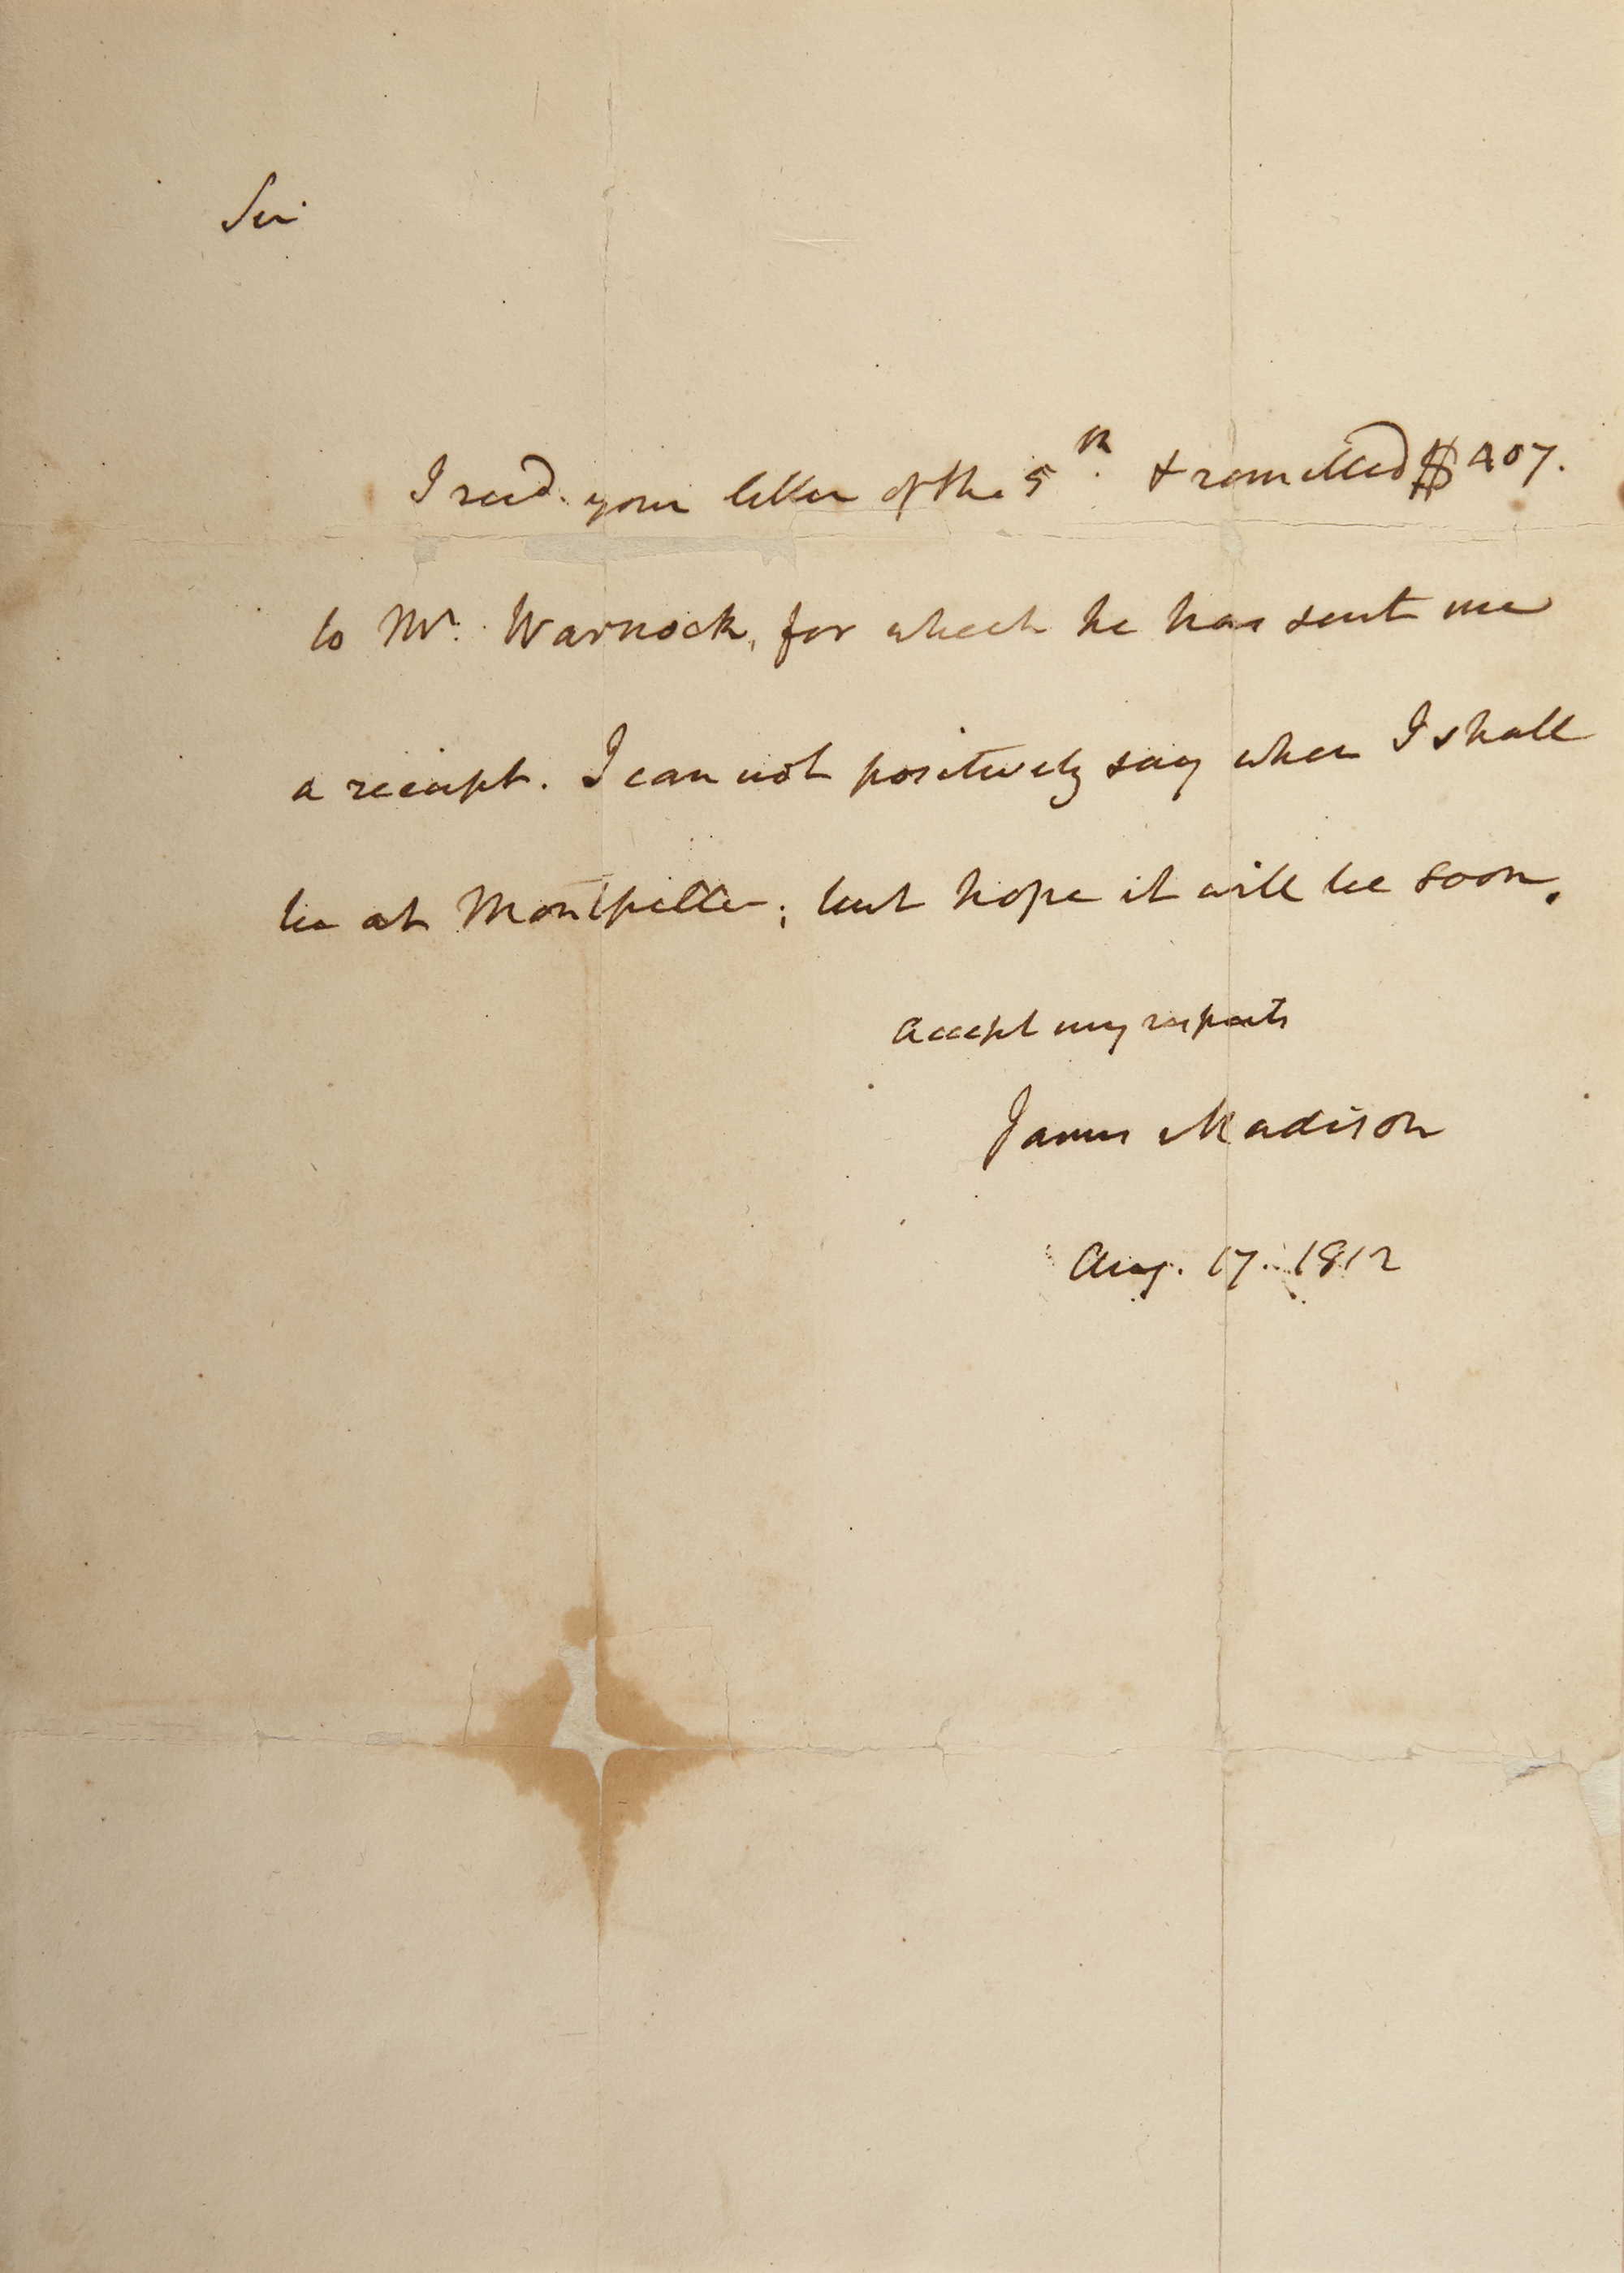 Sir
I recd. your letter of the 5th. & remitted $407.
to Mr. Warnock, for which he has sent me
a receipt. I can not positively say when I shall
be at Montpellier; but hope it will be soon.
Accept my respects
James Madison
Aug. 17. 1812